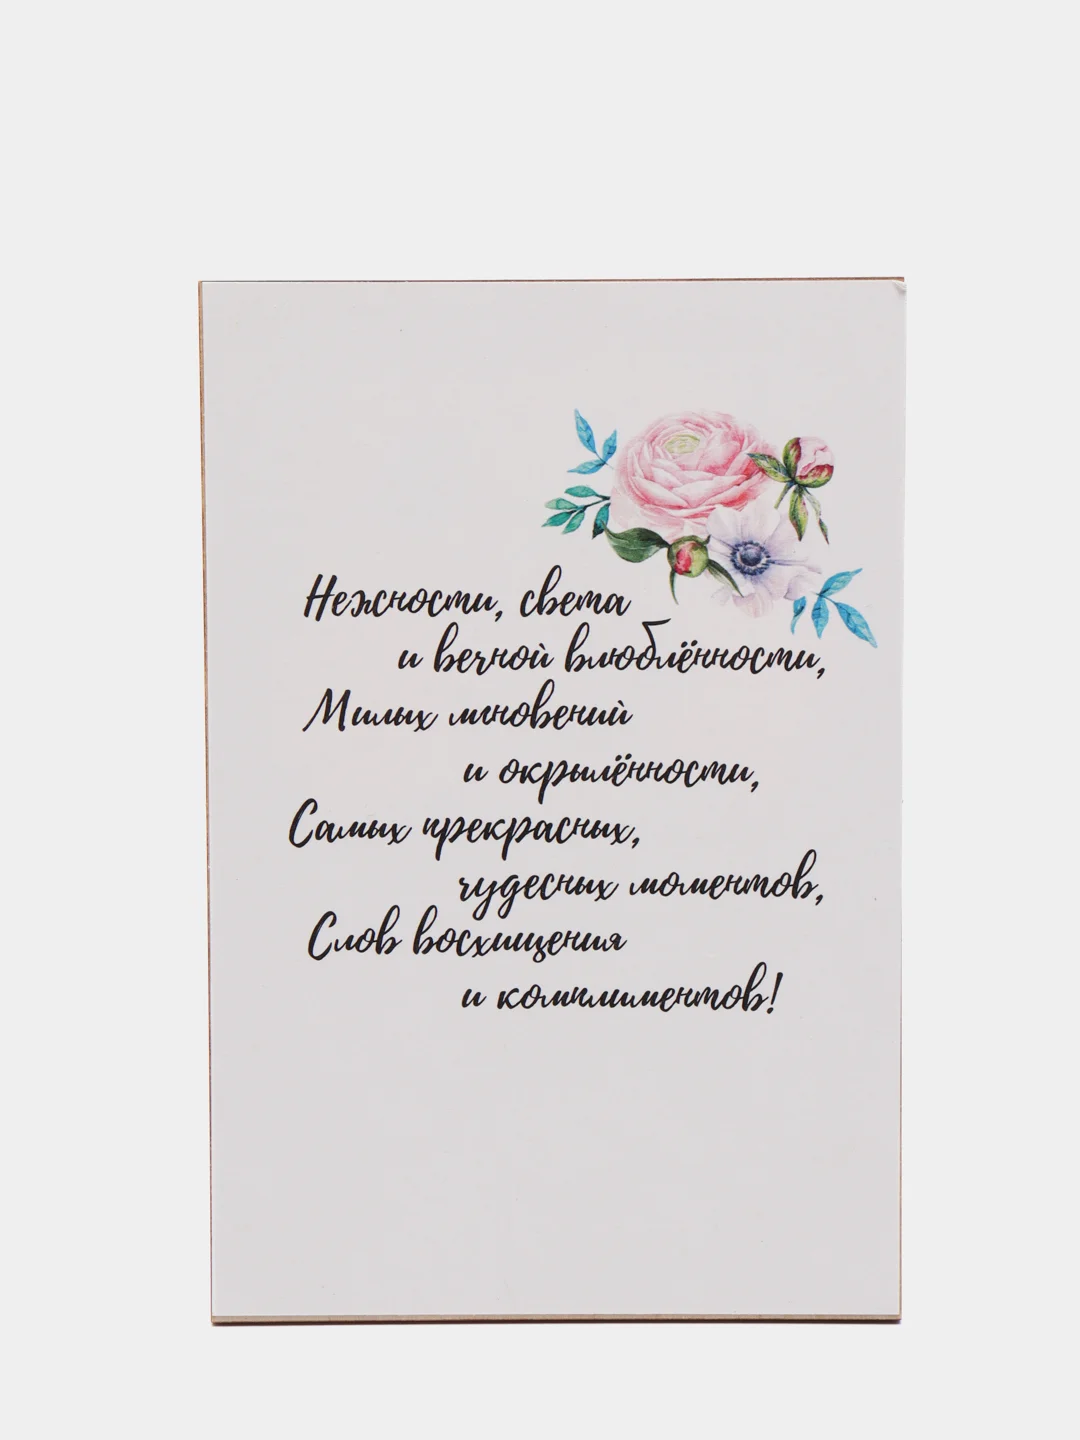 Нежности, света
и вечной влюблённости,
Милых мгновений
и окрылённости,
Самых прекрасных,
чудесных моментов,
Слов восхищения
и комплиментов!